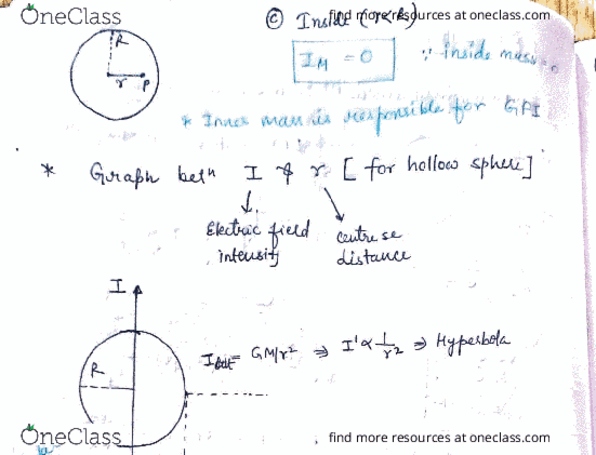 OneClass
find more resources at oneclass.com
R
r P
© Inside (r<R)
I_M = 0 ∵ inside mass = 0
* Inner mass is responsible for GFI
* Graph betn I & r [for hollow sphere]
Electric field intensity
centre se distance
I
R
Iout = GM/r² ⇒ I' ∝ 1/r² ⇒ Hyperbola
OneClass
find more resources at oneclass.com